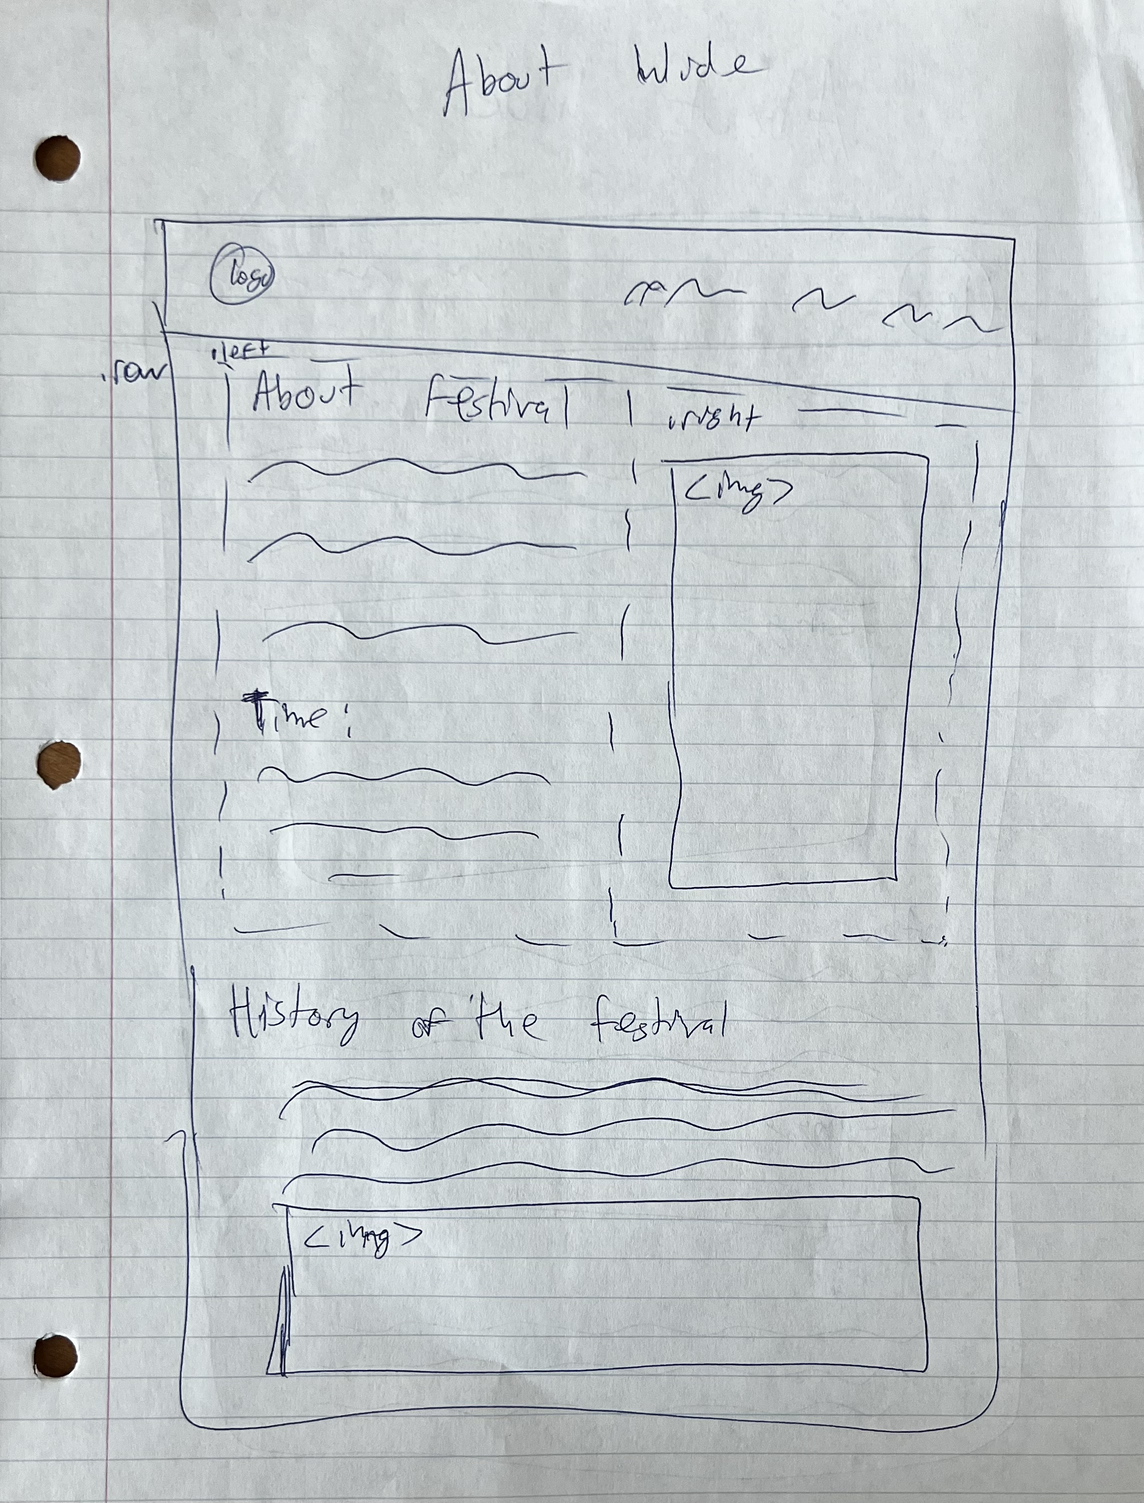 About Wide
logo
.left
.row
About Festival
.right
<img>
Time:
History of the festival
<img>